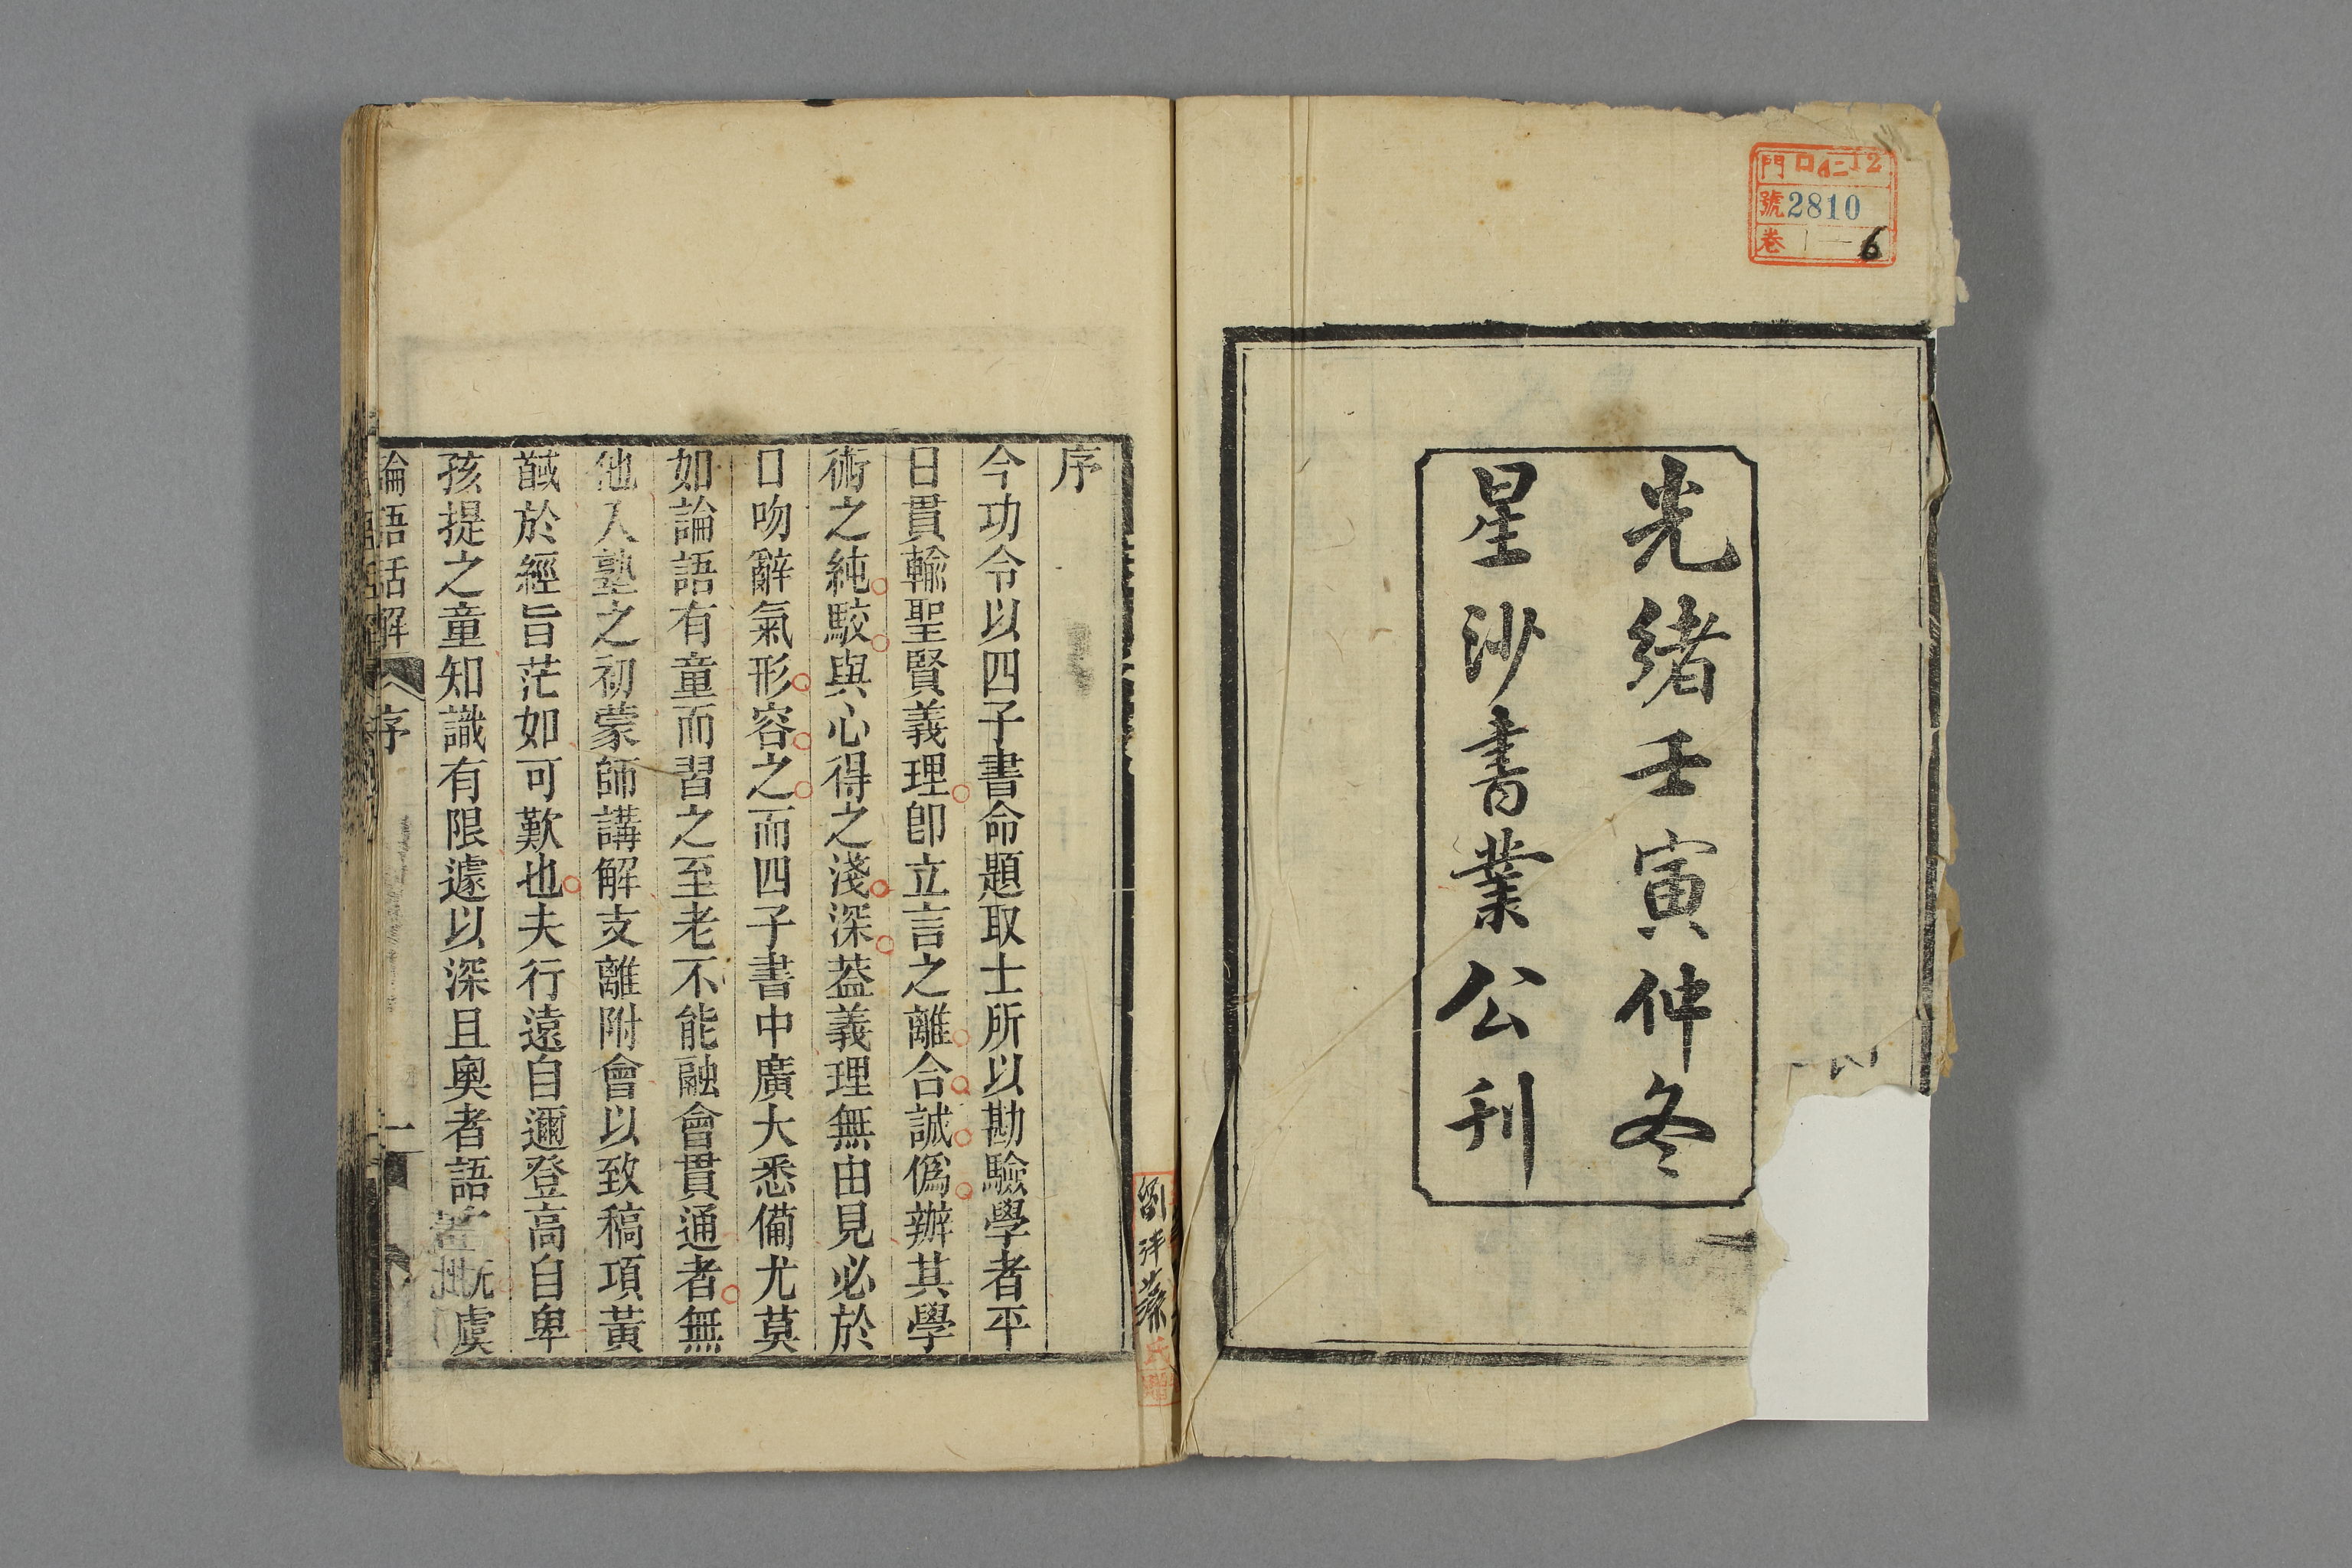 門 口 12
號 2810
卷 1—6
光緒壬寅仲冬
星沙書業公刊
序
今功令以四子書命題取士所以勘驗學者平
日貫輸聖賢義理卽立言之離合誠僞辦其學
術之純駁與心得之淺深葢義理無由見必於
口吻辭氣形容之而四子書中廣大悉備尤莫
如論語有童而習之至老不能融會貫通者無
他入塾之初蒙師講解支離附會以致稿項黃
馘於經旨茫如可歎也夫行遠自邇登高自卑
孩提之童知識有限遽以深且奧者語既虞
論語話解 序 一